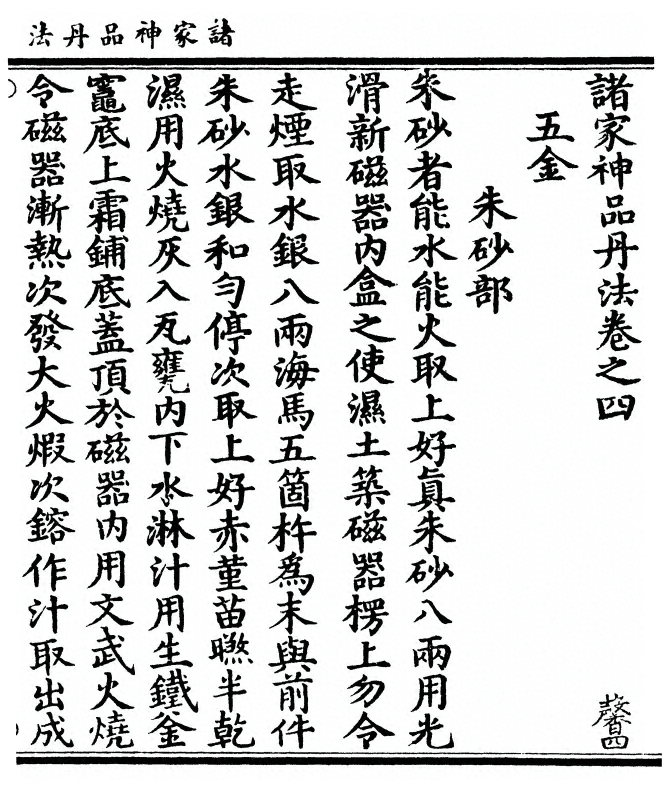 諸家神品丹法
諸家神品丹法卷之四
五金
朱砂部
朱砂者能水能火取上好真朱砂八兩用光
滑新磁器內盒之使濕土築磁器楞上勿令
走煙取水銀八兩海馬五箇杵爲末與前件
朱砂水銀和勻停次取上好赤菫苗㬠半乾
濕用火燒灰入瓦甕內下水淋汁用生鐵釜
竈底上霜鋪底蓋頂於磁器內用文武火燒
令磁器漸熱次發大火煆次鎔作汁取出成